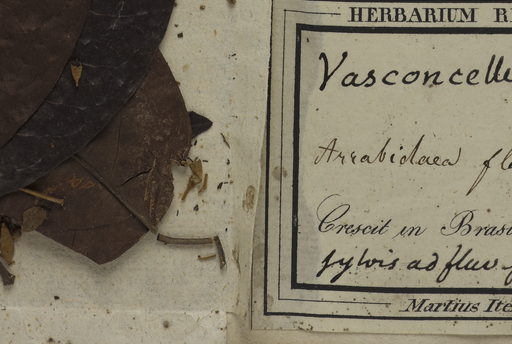 HERBARIUM R
Vasconcelle
Arrabidaea fl
Crescit in Bras
sylvis ad fluv
Martius Ite